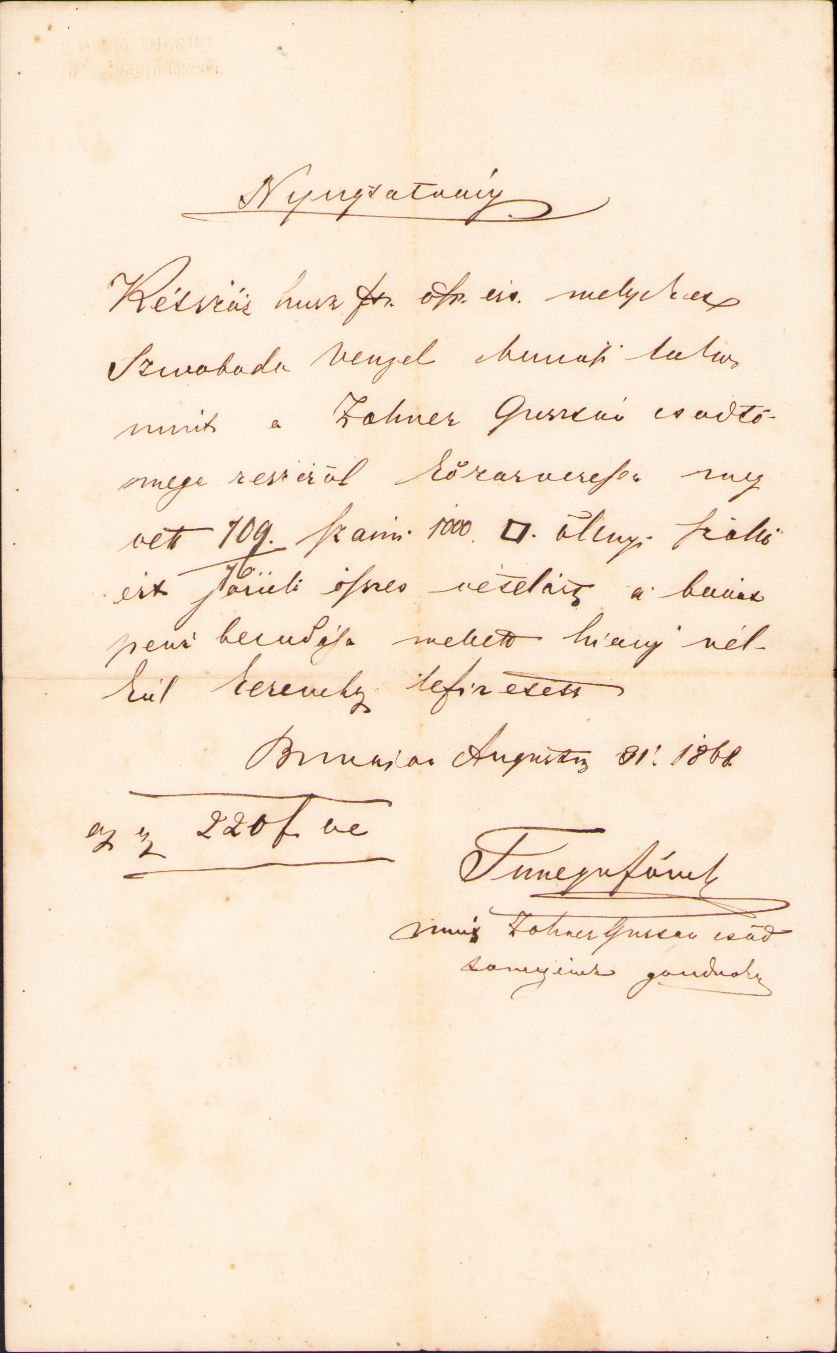 Nyugtatvány
Kétszáz husz frt. oftr. ért. melyeket
Szwoboda Venzel bunasi lakos
mint a Zahner Gusztáv csődtö-
mege részéről közárverésen meg
vett 709. szám. 1000 □. ölnyi szőllő
ért összes vételárt a bánat
pénz beludása mellett hiány nél-
kül lefizetett
Augustus 31. 1868.
az az 220 f
mint Zahner Gusztáv csőd
tömegének gondnoka